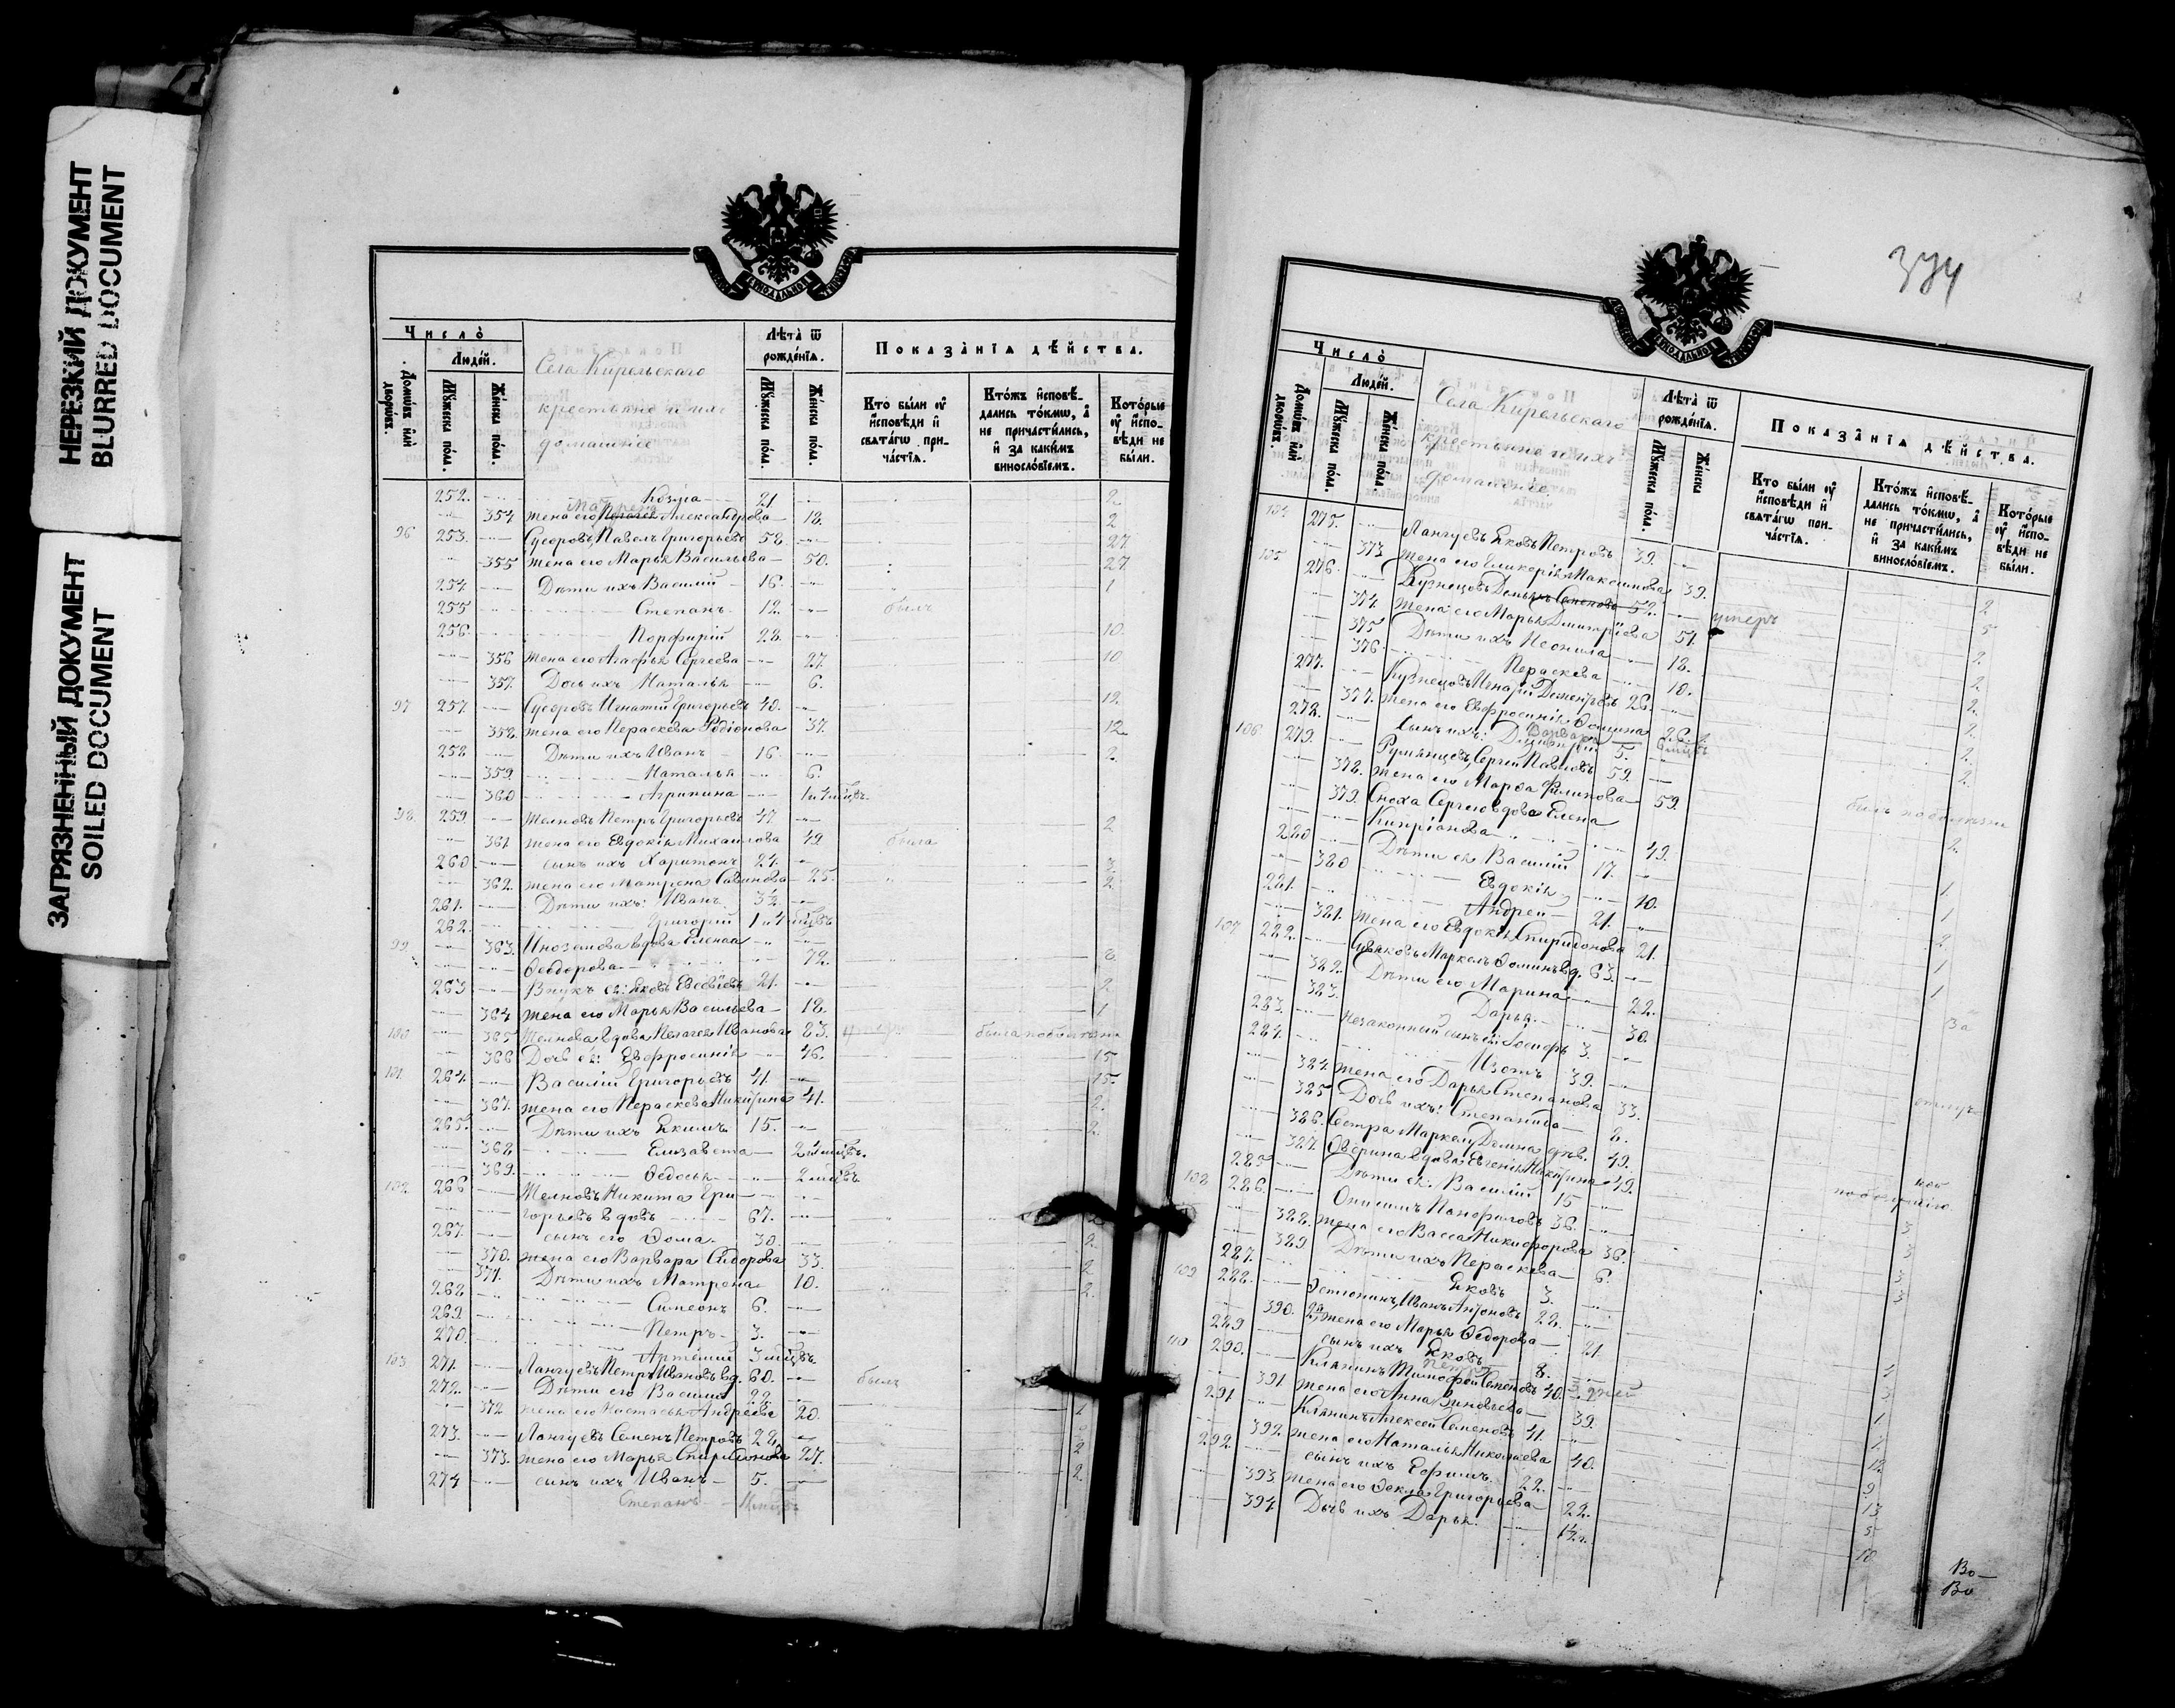 НЕРЕЗКИЙ ДОКУМЕНТ
BLURRED DOCUMENT
ЗАГРЯЗНЕННЫЙ ДОКУМЕНТ
SOILED DOCUMENT
Число̀
Людей.
Домѡвъ или дворѡвъ.
Мꙋжеска пола.
Женска пола.
Села Кирельскаго
крестьяне и ихъ
домашніе
Лѣта ѿ рожденія.
Мꙋжеска пола.
Женска пола.
Показанія дѣйства.
Кто были ᲂу҆ исповѣди и свѧтагѡ причастія.
Ктожъ исповѣдались токмѡ, а не причастились, и за какимъ винословіемъ.
Которые ᲂу҆ исповѣди не были.
252. Козма 21. 2.
354 жена его Матрена Александрова 18. 2
96 253. Суворовъ Павелъ Григорьевъ 58. 27
355 жена его Марья Васильева 50. 27
254 Дѣти ихъ Василій 16. 1
255 Степанъ 12. былъ
256 Порфирій 28. 10.
356 жена его Агафья Сергеева 27. 10
357. Дочь ихъ Наталья 6.
97 257. Суворовъ Игнатій Григорьевъ 40. 12
358. жена его Пераскева Родіонова 37. 12
258 Дѣти ихъ Иванъ 16. 2.
359. Наталья 6.
360 Агрипина 1 и 4 мѣсц.
98. 259. Петръ Григорьевъ 47 2
361 жена его Евдокія Михайлова 49 была
260 сынъ ихъ Харитонъ 24. 3.
362. жена его Матрена Савинова 25. 2.
261. Дѣти ихъ: Иванъ 3½
262. Григорій
99 363. вдова Елена
Ѳеодорова 72. 8.
263 Внукъ ея: Яковъ 21. 2
364 жена его Марья Васильева 18. 1
100 365 вдова Пелагея Иванова 83. была по болѣзни
366 Дочь ея: Евфросинія 46. 15
101 264. Василій Григорьевъ 41. 15.
367. жена его Пераскева Никитина 41. 2.
265. Дѣти ихъ Якимъ 15. 2.
368 Елизавета
369. Ѳедосья 2 мѣсц.
102 266 Никита Гри-
горьевъ вдовъ 67.
267. сынъ его Ѳома 30. 2.
370. жена его Варвара Сидорова 33. 2
371. Дѣти ихъ Матрена 10. 2.
268 Симеонъ 6.
269. Петръ 3.
270. Артемій 3 мѣсц.
103. 271. Лангуевъ Петръ Ивановъ вд. 60. былъ
272. Дѣти его Василій 22.
372 жена его Настасья Андреева 20.
273. Лангуевъ Семенъ Петровъ 28. 2
373. жена его Марья Спиридонова 27. 2.
274 сынъ ихъ Иванъ 5.
Степанъ
374
Число̀
Людей.
Домѡвъ или дворѡвъ.
Мꙋжеска пола.
Женска пола.
Села Кирельскаго
крестьяне и ихъ
домашніе.
Лѣта ѿ рожденія.
Мꙋжеска пола.
Женска
Показанія дѣйства.
Кто были ᲂу҆ исповѣди и свѧтагѡ причастія.
Ктожъ исповѣдались токмѡ, а не причастились, и за какимъ винословіемъ.
Которые ᲂу҆ исповѣди не были.
104 275. Лангуевъ Яковъ Петровъ 39.
373 жена его Гликерія Максимова 39. 2
105 276. Кузнецовъ 52. умеръ 5
374. жена его Марья Дмитріева 51. 2
375 Дѣти ихъ Неонила 18. 2.
376. Пераскева 10. 2.
277. Кузнецовъ Игнатій 26. 2.
377. жена его Евфросинія Ѳомина 26. 2.
278. сынъ ихъ: Димитрій 5.
Варвара
106 279. Румянцевъ Сергей Павловъ 59. былъ по болѣзни
378. жена его Марѳа Филипова 59. 2.
379. Сноха Сергею вдова Елена
Кипріанова 49. 1
280 Дѣти ея Василій 17. 1
380 Евдокія 10. 2
281. Андрей 21. 1
381. жена его Евдокія Спиридонова 21. 1
107 282. Маркелъ Ѳоминъ вд. 63.
382. Дѣти его Марина 22.
383. Дарья 30.
283. незаконный сынъ ея: Іосифъ 3.
284. Изотъ 39.
384. жена его Дарья Степанова 33.
385 Дочь ихъ: Степанида 2.
386. Сестра Маркелу дѣв. 49.
387. вдова Евгенія Никитина 49.
285 Дѣти ея: Василій 15 3
108 286. Онисимъ Панфиловъ 36. 3
388. жена его Васса Никифорова 36. 3
389 Дѣти ихъ Пераскева 6.
287. Яковъ 3.
109 288. Иванъ Антоновъ 22.
390. 2я жена его Марья Ѳедорова 21.
289 сынъ ихъ Яковъ
Петръ
110 290. Клянинъ Тимофей Семеновъ 40.
391 жена его Анна Зиновьева 39.
291 Клянинъ Алексей Семеновъ 41. 12
392. жена его Наталья Николаева 40. 9
292. сынъ ихъ Ефимъ 22. 13
393. жена его Ѳекла Григорьева 22. 5
394. Дочь ихъ Дарья 1½г. 10
Во-
Во